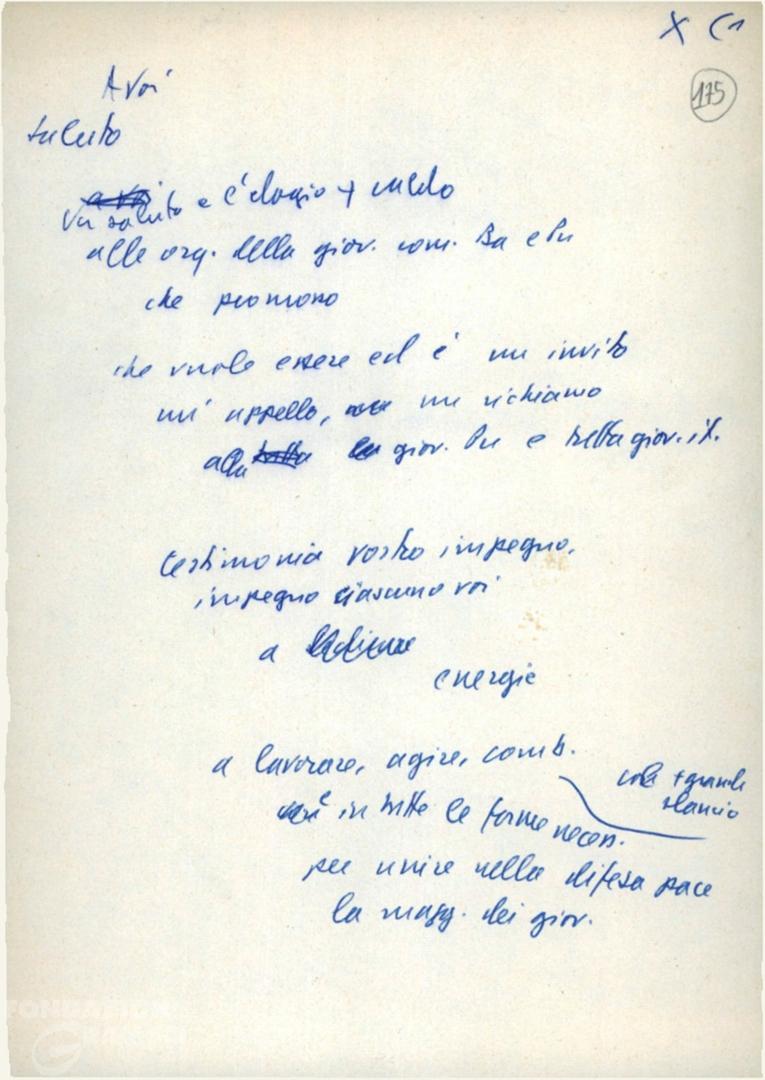 X C1
175
A voi
saluto
Un saluto e l'elogio + caldo
alle org. della giov. com. Ba e Pu
che
che vuole essere ed è un invito
un' appello, un richiamo
alla giov. Pu e tutta giov. it.
testimonia vostro impegno,
impegno ciascuno voi
a
energie
a lavorare, agire, comb.
con + grande
slancio
in tutte le forme necess.
per unire nella difesa pace
la magg. dei giov.
FONDAZIONE